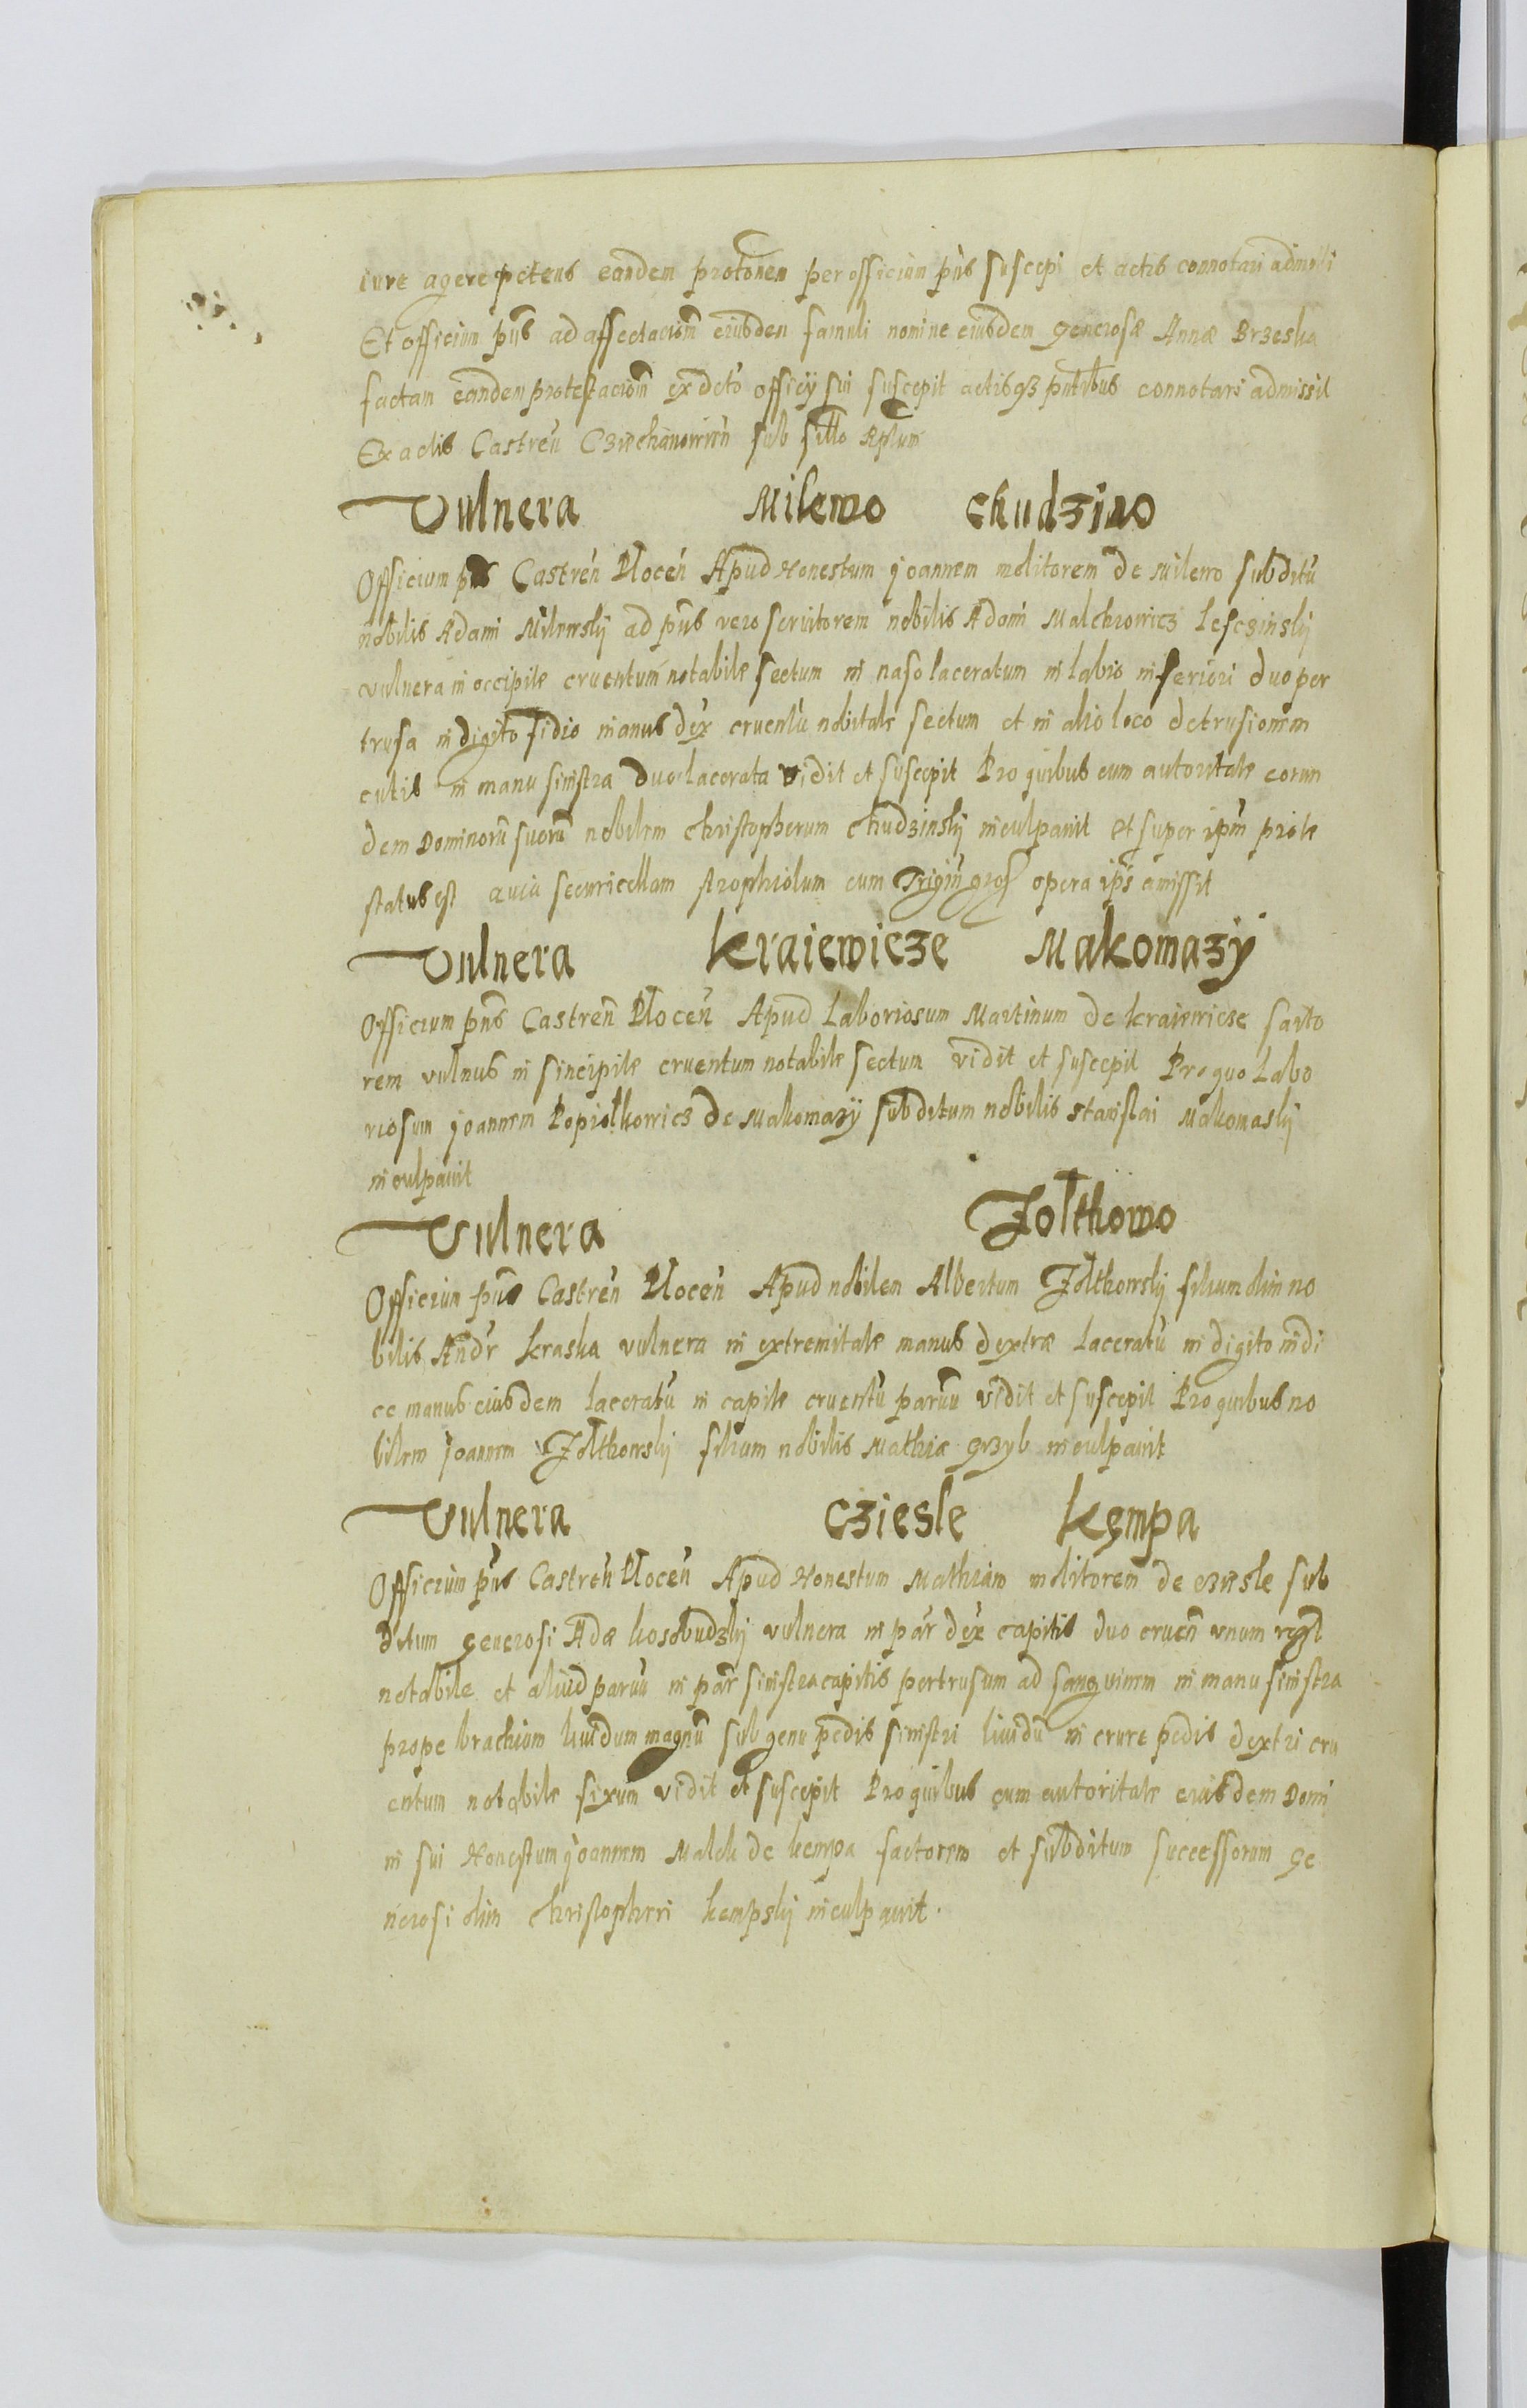 iure agere petens eandem proťonem per officium pn̄s suscepi et actis connotari admisi
Et officium pn̄s ad affectacion̄ eiusdem famuli nomine eiusdem generosæ Annæ Brzeska
factam eandem protestacion̄ ex deto officÿ sui suscepit actisqʒ pn̄tibus connotari admissit
Ex actis Castren̄ Cziechanowien̄ sub sillo
Vulnera Milewo Chudzino
Officium pn̄s Castren̄ Plocen̄ Apud Honestum joannem molitorem de Milewo subditū
nobilis Adami Milewskÿ ad pn̄s vero servitorem nobilis Adami Malchrowicz Lesczinskÿ
vulnera in occipite cruentum notabile sectum in naso laceratum in labio inferiori duo per
trusa in digito manus dex cruentū notabile sectum et in alio loco detrusionem
cutis in manu sinistra duo lacerata vidit et suscepit Pro quibus cum autoritate eorun
dem Dominorū suorū nobilem Christopherum Chudzinskÿ inculpavit Et super ipm̄ prote
status est securicellam strophiolum cum opera ips amissit
Vulnera Kraiewicze Makomazÿ
Officium pn̄s Castren̄ Plocen̄ Apud Laboriosum Martinum de kraiewicze sarto
rem vulnus in sincipite cruentum notabile sectum vidit et suscepit Pro quo Labo
riosum joannem Popiołkowicz de Makomazÿ subditum nobilis Stanislai Makomaskÿ
inculpavit
Vulnera Żołthowo
Officium pn̄s Castren̄ Plocen̄ Apud nobilem Albertum Żołthowskÿ filium olim no
bilis Andr kraska vulnera in extremitate manus dextræ laceratū in digito indi
ce manus eiusdem laceratū in capite cruentū parvū vidit et suscepit Pro quibus no
bilem joannem Żołthowskÿ filium nobilis Mathiæ grzyb inculpavit
Vulnera Cziesle Kempa
Officium pn̄s Castren̄ Plocen̄ Apud Honestum Mathiam molitorem de cziesle sub
ditum generosi Adæ kosobudzkÿ vulnera in par dex capitis duo cruen̄ unum
notabile et aliud parvū in par sinistra capitis pertrusum ad sanguinem in manu sinistra
prope brachium lividum magnū sub genu pedis sinistri lividū in crure pedis dextri cru
entum notabile fixum vidit et suscepit Pro quibus cum autoritate eiusdem Domi
ni sui Honestum joannem Malek de kempa factorem et subditum successorum ge
nerosi olim Christopheri kempskÿ inculpavit.